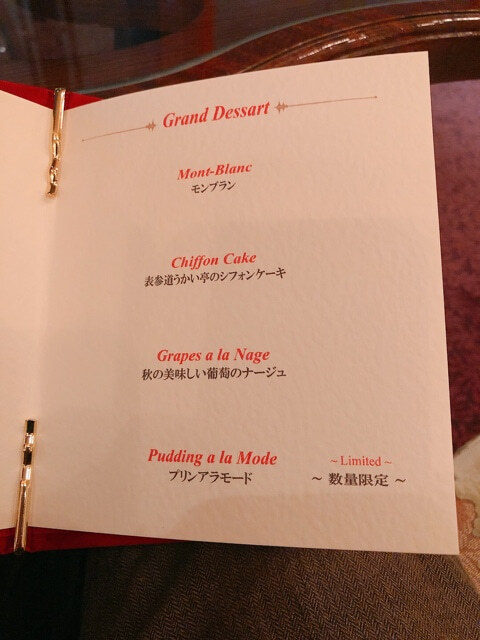 Grand Dessart
Mont-Blanc
モンブラン
Chiffon Cake
表参道うかい亭のシフォンケーキ
Grapes a la Nage
秋の美味しい葡萄のナージュ
Pudding a la Mode
プリンアラモード
~ Limited ~
~ 数量限定 ~